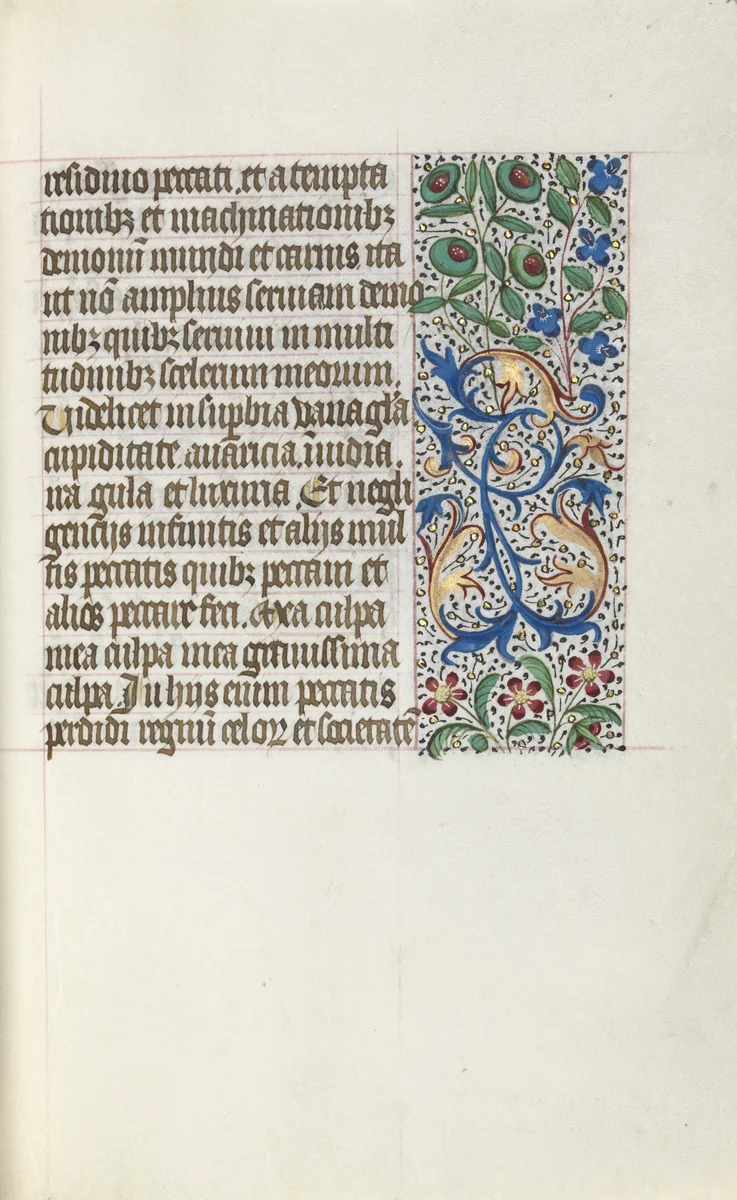 residuo peccati, et a tempta
tionibꝫ et machinationibꝫ
demonũ mundi et carnis ita
ut nõ amplius seruiam demo
nibꝫ quibꝫ seruiui in multi
tudinibꝫ scelerum meorum.
Videlicet in suꝑbia vanagl̃a
cupiditate auaricia. ĩuidia.
ira gula et luxuria. Et negli
gencijs infinitis et alijs mul
tis peccatis quibꝫ peccaui et
alios peccare feci. Mea culpa
mea culpa mea grauissima
culpa. In hijs enim peccatis
perdidi regnũ celoꝝ et societatẽ